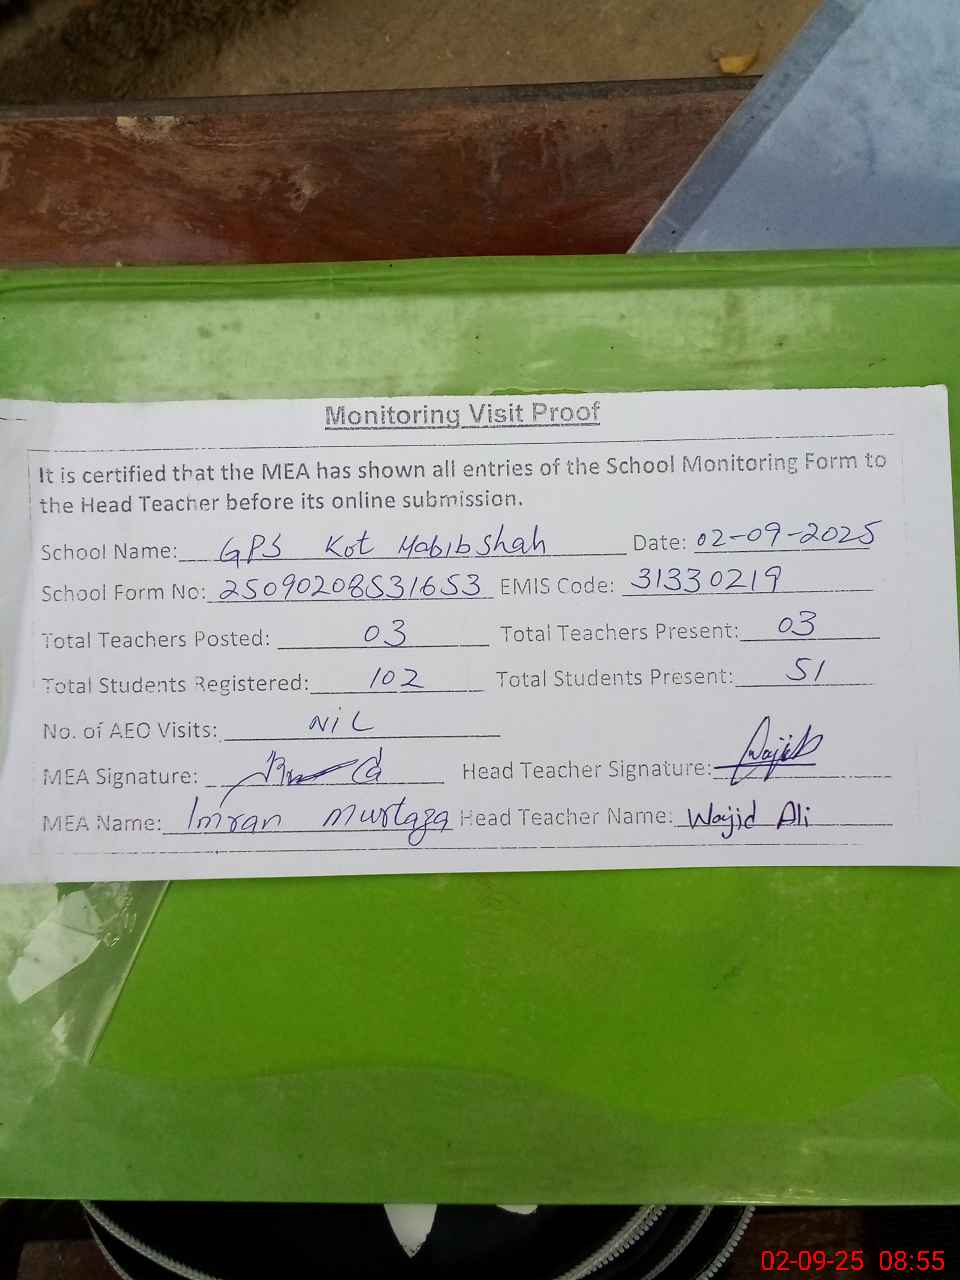 Monitoring Visit Proof
It is certified that the MEA has shown all entries of the School Monitoring Form to
the Head Teacher before its online submission.
School Name: GPS Kot Habib Shah Date: 02-09-2025
School Form No: 25090208531653 EMIS Code: 31330219
Total Teachers Posted: 03 Total Teachers Present: 03
Total Students Registered: 102 Total Students Present: 51
No. of AEO Visits: NiL
MEA Signature: Head Teacher Signature: Wajid
MEA Name: Imran Murtaza Head Teacher Name: Wajid Ali
02-09-25 08:55